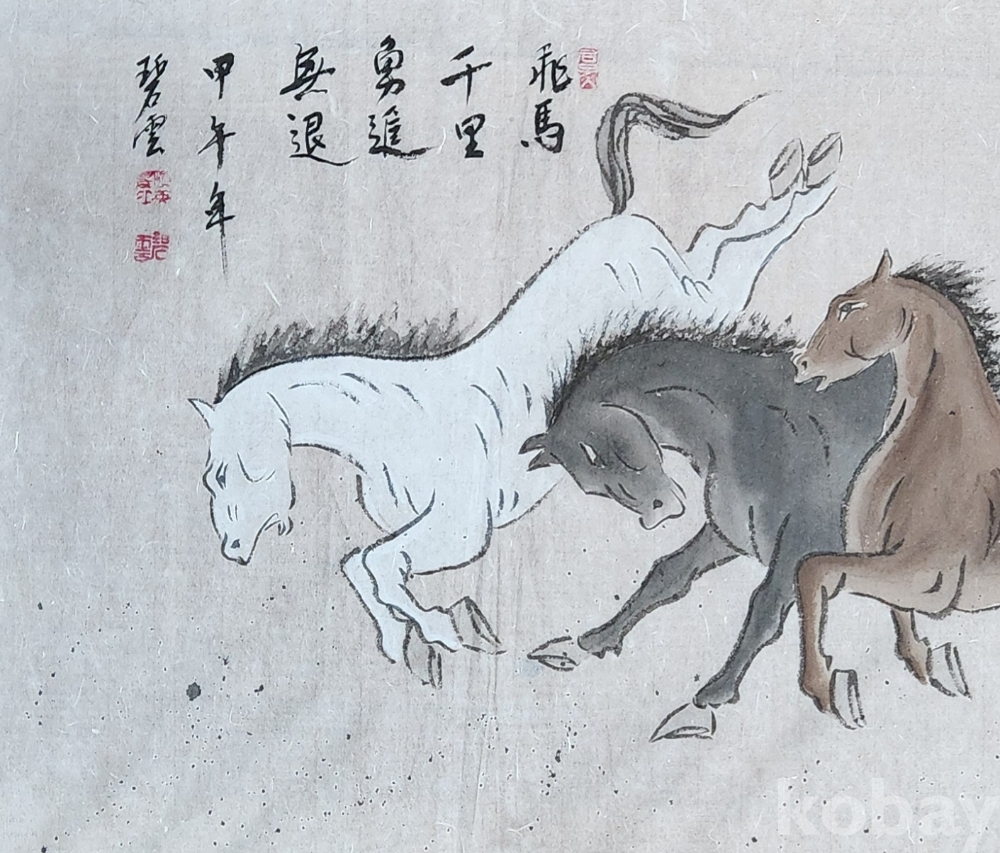 飛馬
千里
勇進
無退
甲午年
碧雲
kobay